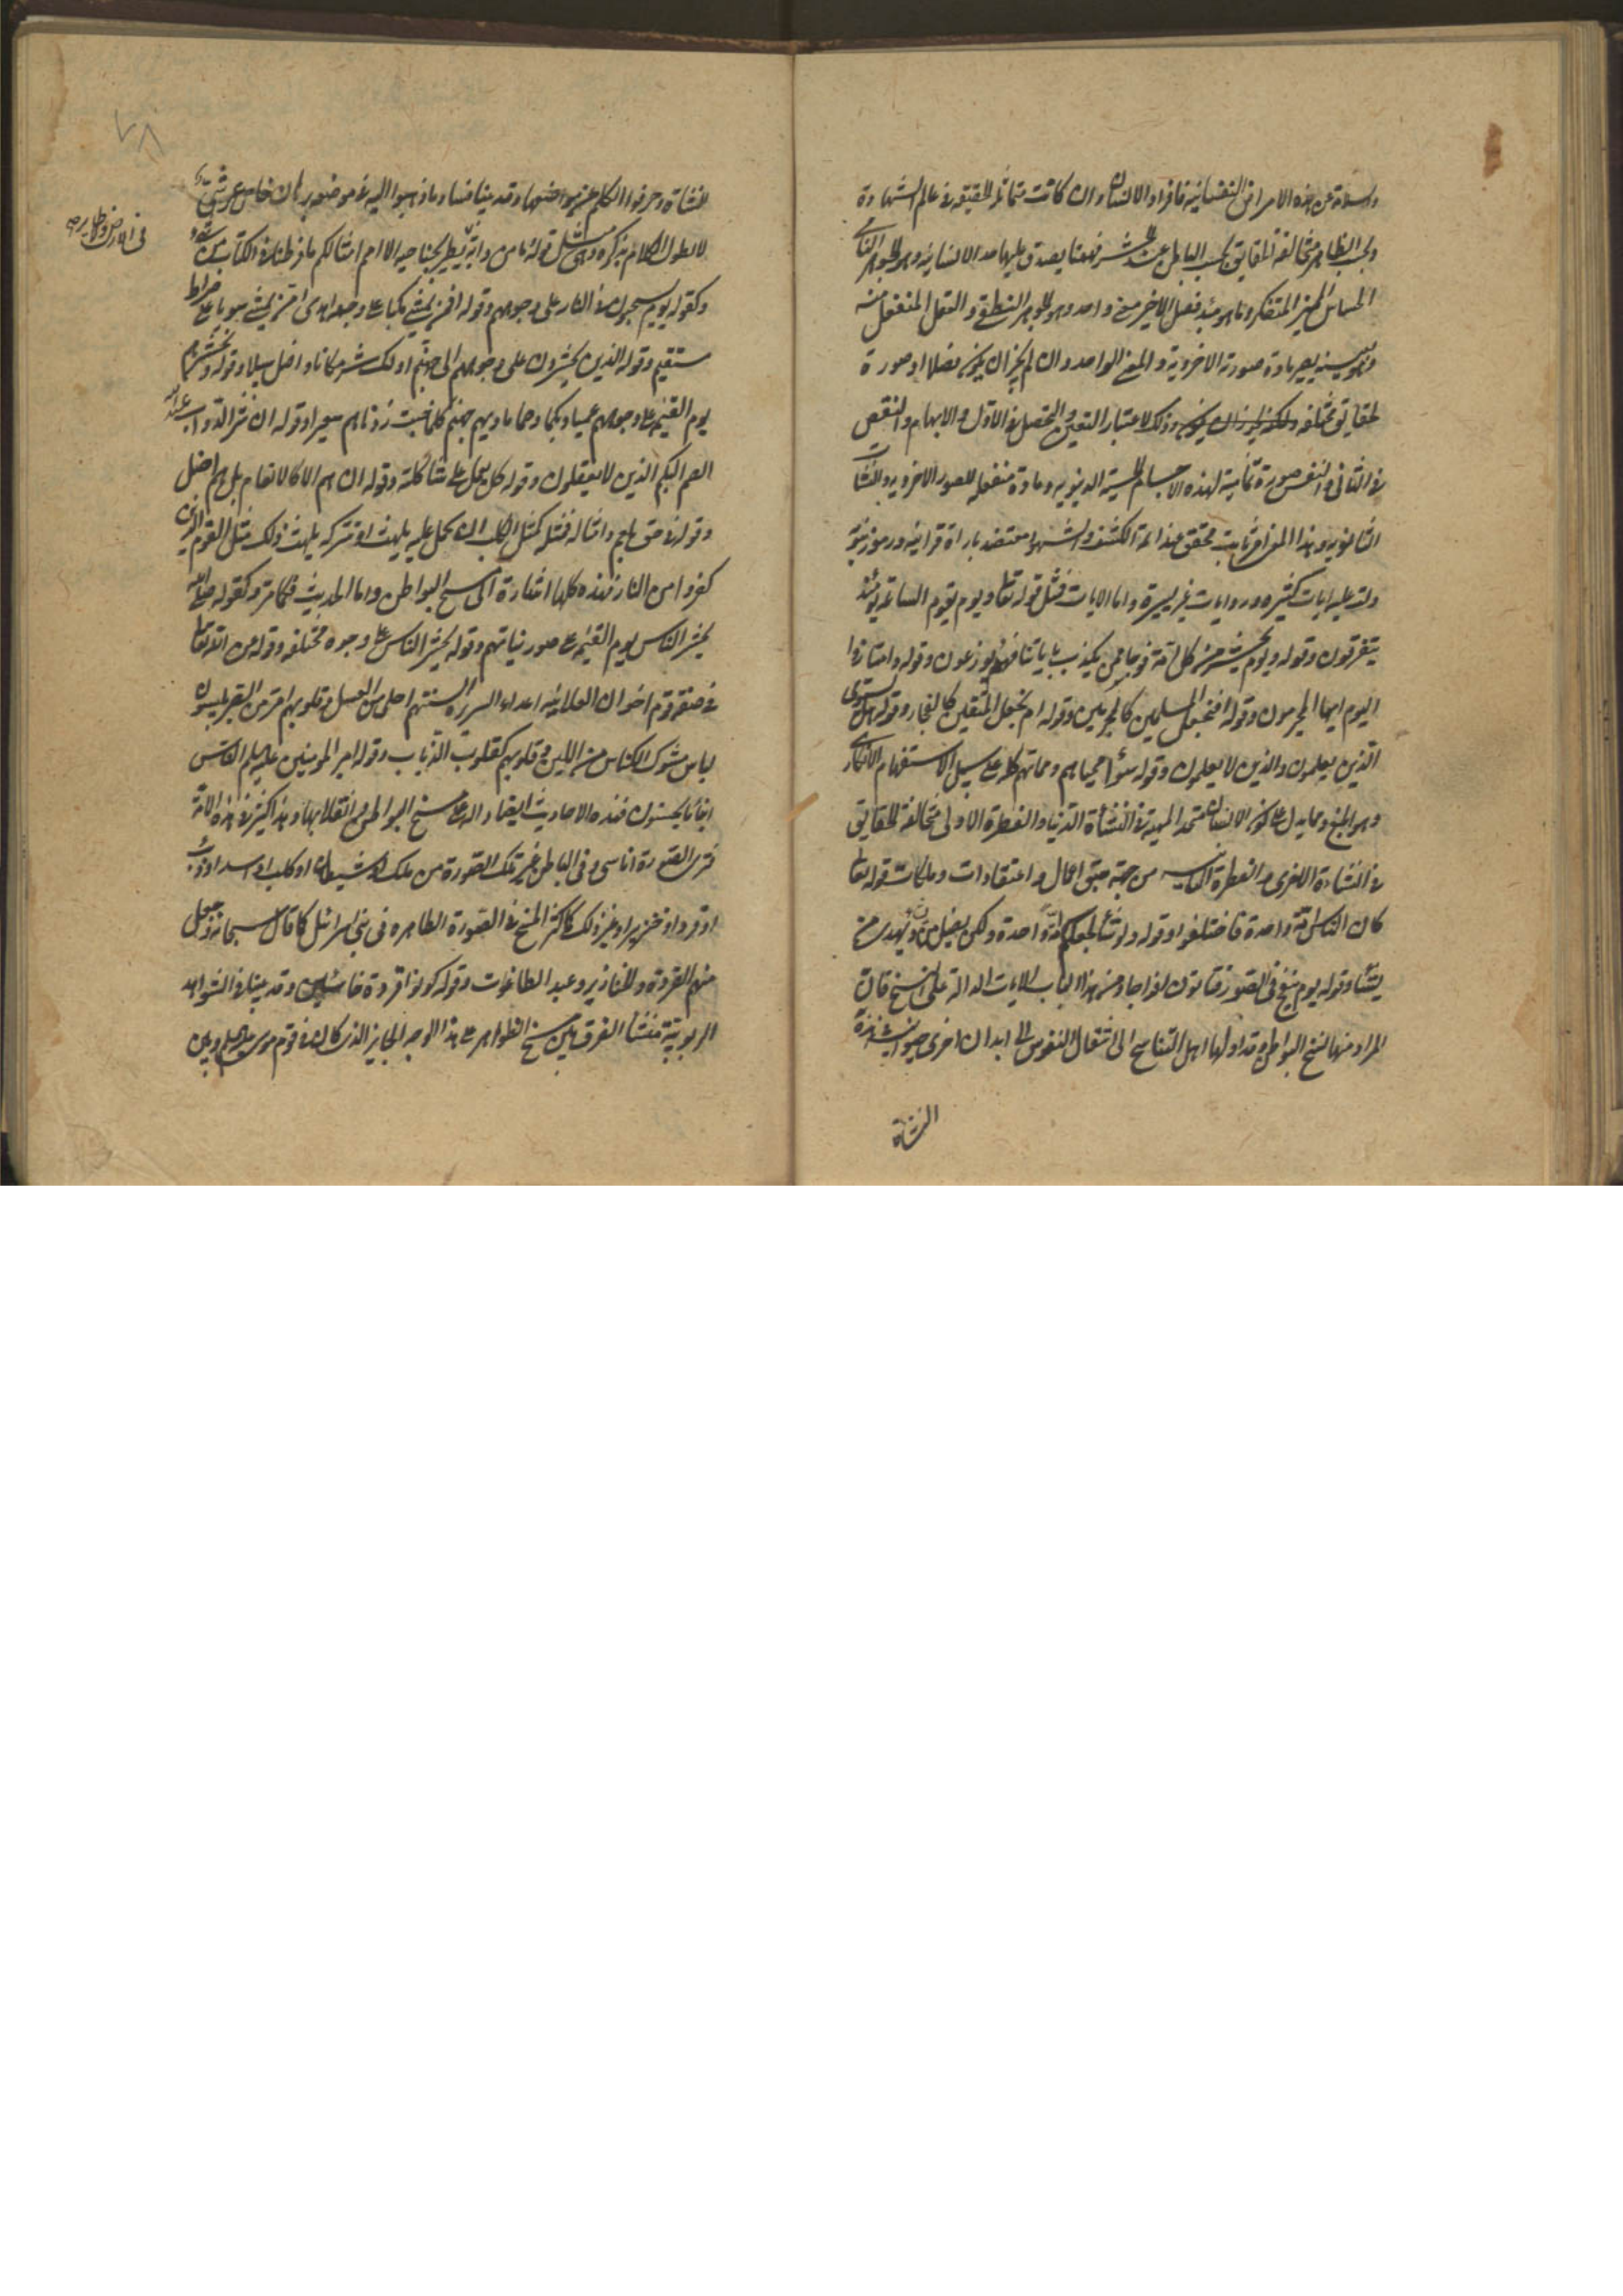 والسلامة عن هذه الامراض النفسانية فافراد الانسان وان كانت متماثلة الحقيقة في عالم الشهادة
وبحسب الظاهر مخالفة الحقايق بحسب الباطن عند الحشر فههنا يصدق عليها حد الانسانية وهو الجوهر النامي
الحساس المميز المتفكر وما هو مبدء فصل الاخير معنى واحد وهو الجوهر النطقي و العقل المنفعل منه
يصير مادة صورته الاخروية والمعنى الواحد وان لم يجز ان يكون فصلا او صورة
لحقايق مختلفة ولكن يجوز ان يكون وذلك لاعتبار التعين والتحصل في الاول والابهام والنقص
في الثاني والنفس صورة تمامية لهذه الاجسام الحسية الدنيوية ومادة منفعلة للصور الاخروية والنشاءة
الثانوية وهذا المرام ثابت محقق عند ائمة الكشف والشهود معتضد باراة قرانية ورموز نبوية
دلت عليه ايات كثيره وروايات غير يسيرة واما الايات فمثل قوله تعا ويوم تقوم الساعة يومئذ
يتفرقون وقوله ويوم نحشر من كل امة فوجا ممن يكذب باياتنا فهم يوزعون وقوله وامتازوا
اليوم ايها المجرمون وقوله افنجعل المسلمين كالمجرمين وقوله ام نجعل المتقين كالفجار وقوله هل يستوى
الذين يعلمون والذين لا يعلمون وقوله سوأ محياهم ومماتهم كله على سبيل الاستفهام الانكارى
وهو ابلغ ومما يدل على كون الانسان متحد المهية في النشأة الدنيا والفطرة الاولى مخالفة الحقايق
في النشاءة الاخرى والفطرة الثانيه من جهة سبق اعمال واعتقادات وملكات قوله تعا
كان الناس امة واحدة فاختلفوا وقوله ولو شأ لجعلكم امة واحدة ولكن يضل من يشأ ويهدى من
يشأ وقوله يوم ينفخ في الصور فتأتون افواجا ومن هذا الباب الايات الدالة على المسخ فان
المراد منها نسخ البواطن وقد اولها اهل التناسخ الى انتقال النفوس الى ابدان اخرى حيوانية في هذه
النشاة
النشاة وحرفوا الكلم عن مواضعها وقد بينا فساد ما ذهبوا اليه في موضعه ببرهان خاص عرشي
لا يطول الكلام بذكره وهي مثل قوله ما من دابة يطير بجناحيه الا امم امثالكم ما فرطنا في الكتاب من شئ
في الارض ولا طاير صح
وكقوله يوم يسحبون في النار على وجوههم وقوله افمن يمشي مكبا على وجهه اهدى امن يمشي سويا على صراط
مستقيم وقوله الذين يحشرون على وجوههم الى جهنم اولئك شر مكانا واضل سبيلا وقوله ونحشرهم
يوم القيمه على وجوههم عميا وبكما وصما ماويهم جهنم كلما خبت زدناهم سعيرا وقوله ان شر الدواب عند الله
الصم البكم الذين لا يعقلون وقوله كل يعمل على شاكلته وقوله ان هم الا كالانعام بل هم اضل
وقوله في حق بلعم وامثاله فمثله كمثل الكلب ان تحمل عليه يلهث او تتركه يلهث ذلك مثل القوم الذين
كفروا من النار فهذه كلها اشارة الى مسخ البواطن واما الحديث فكما مر وكقوله صلى الله
يحشر الناس يوم القيمه على صور نياتهم وقوله يحشر الناس على وجوه مختلفه وقوله من الله تعا
في صفة قوم اخوان العلانية اعداء السريرة السنتهم احلى من العسل وقلوبهم امر من الصبر يلبسون
لباس مسوك الكباش من اللين وقلوبهم كقلوب الذياب وقوله امير المومنين عليه السلم الناس
ابنأ ما يحسنون فهذه الاحاديث ايضا دالة على مسخ البواطن وانقلابها وهذا كثير في هذه الامة
فترى الصورة اناسى وفي الباطن غير تلك الصورة من ملك او شيطان او كلب او اسد او ذئب
او قرد او خنزير او غير ذلك كما كثر المسخ في الصورة الظاهره في بني اسرائيل كما قال سبحانه وجعل
منهم القردة والخنازير وعبد الطاغوت وقوله كونوا قردة خاسئين وقد بينا في الشواهد
الربوبية منشأ الفرق بين مسخ الظواهر على هذا الوجه الجايز الذي كان في قوم موسى عليه السلم وبين